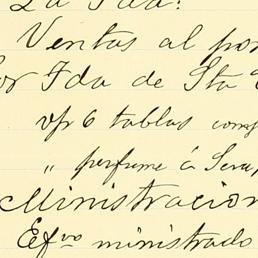 La Fda.
Ventas al por
por Fda de Sta
v/r 6 tablas comp
" perfume á Sera,
Ministracion
Efvo ministrado